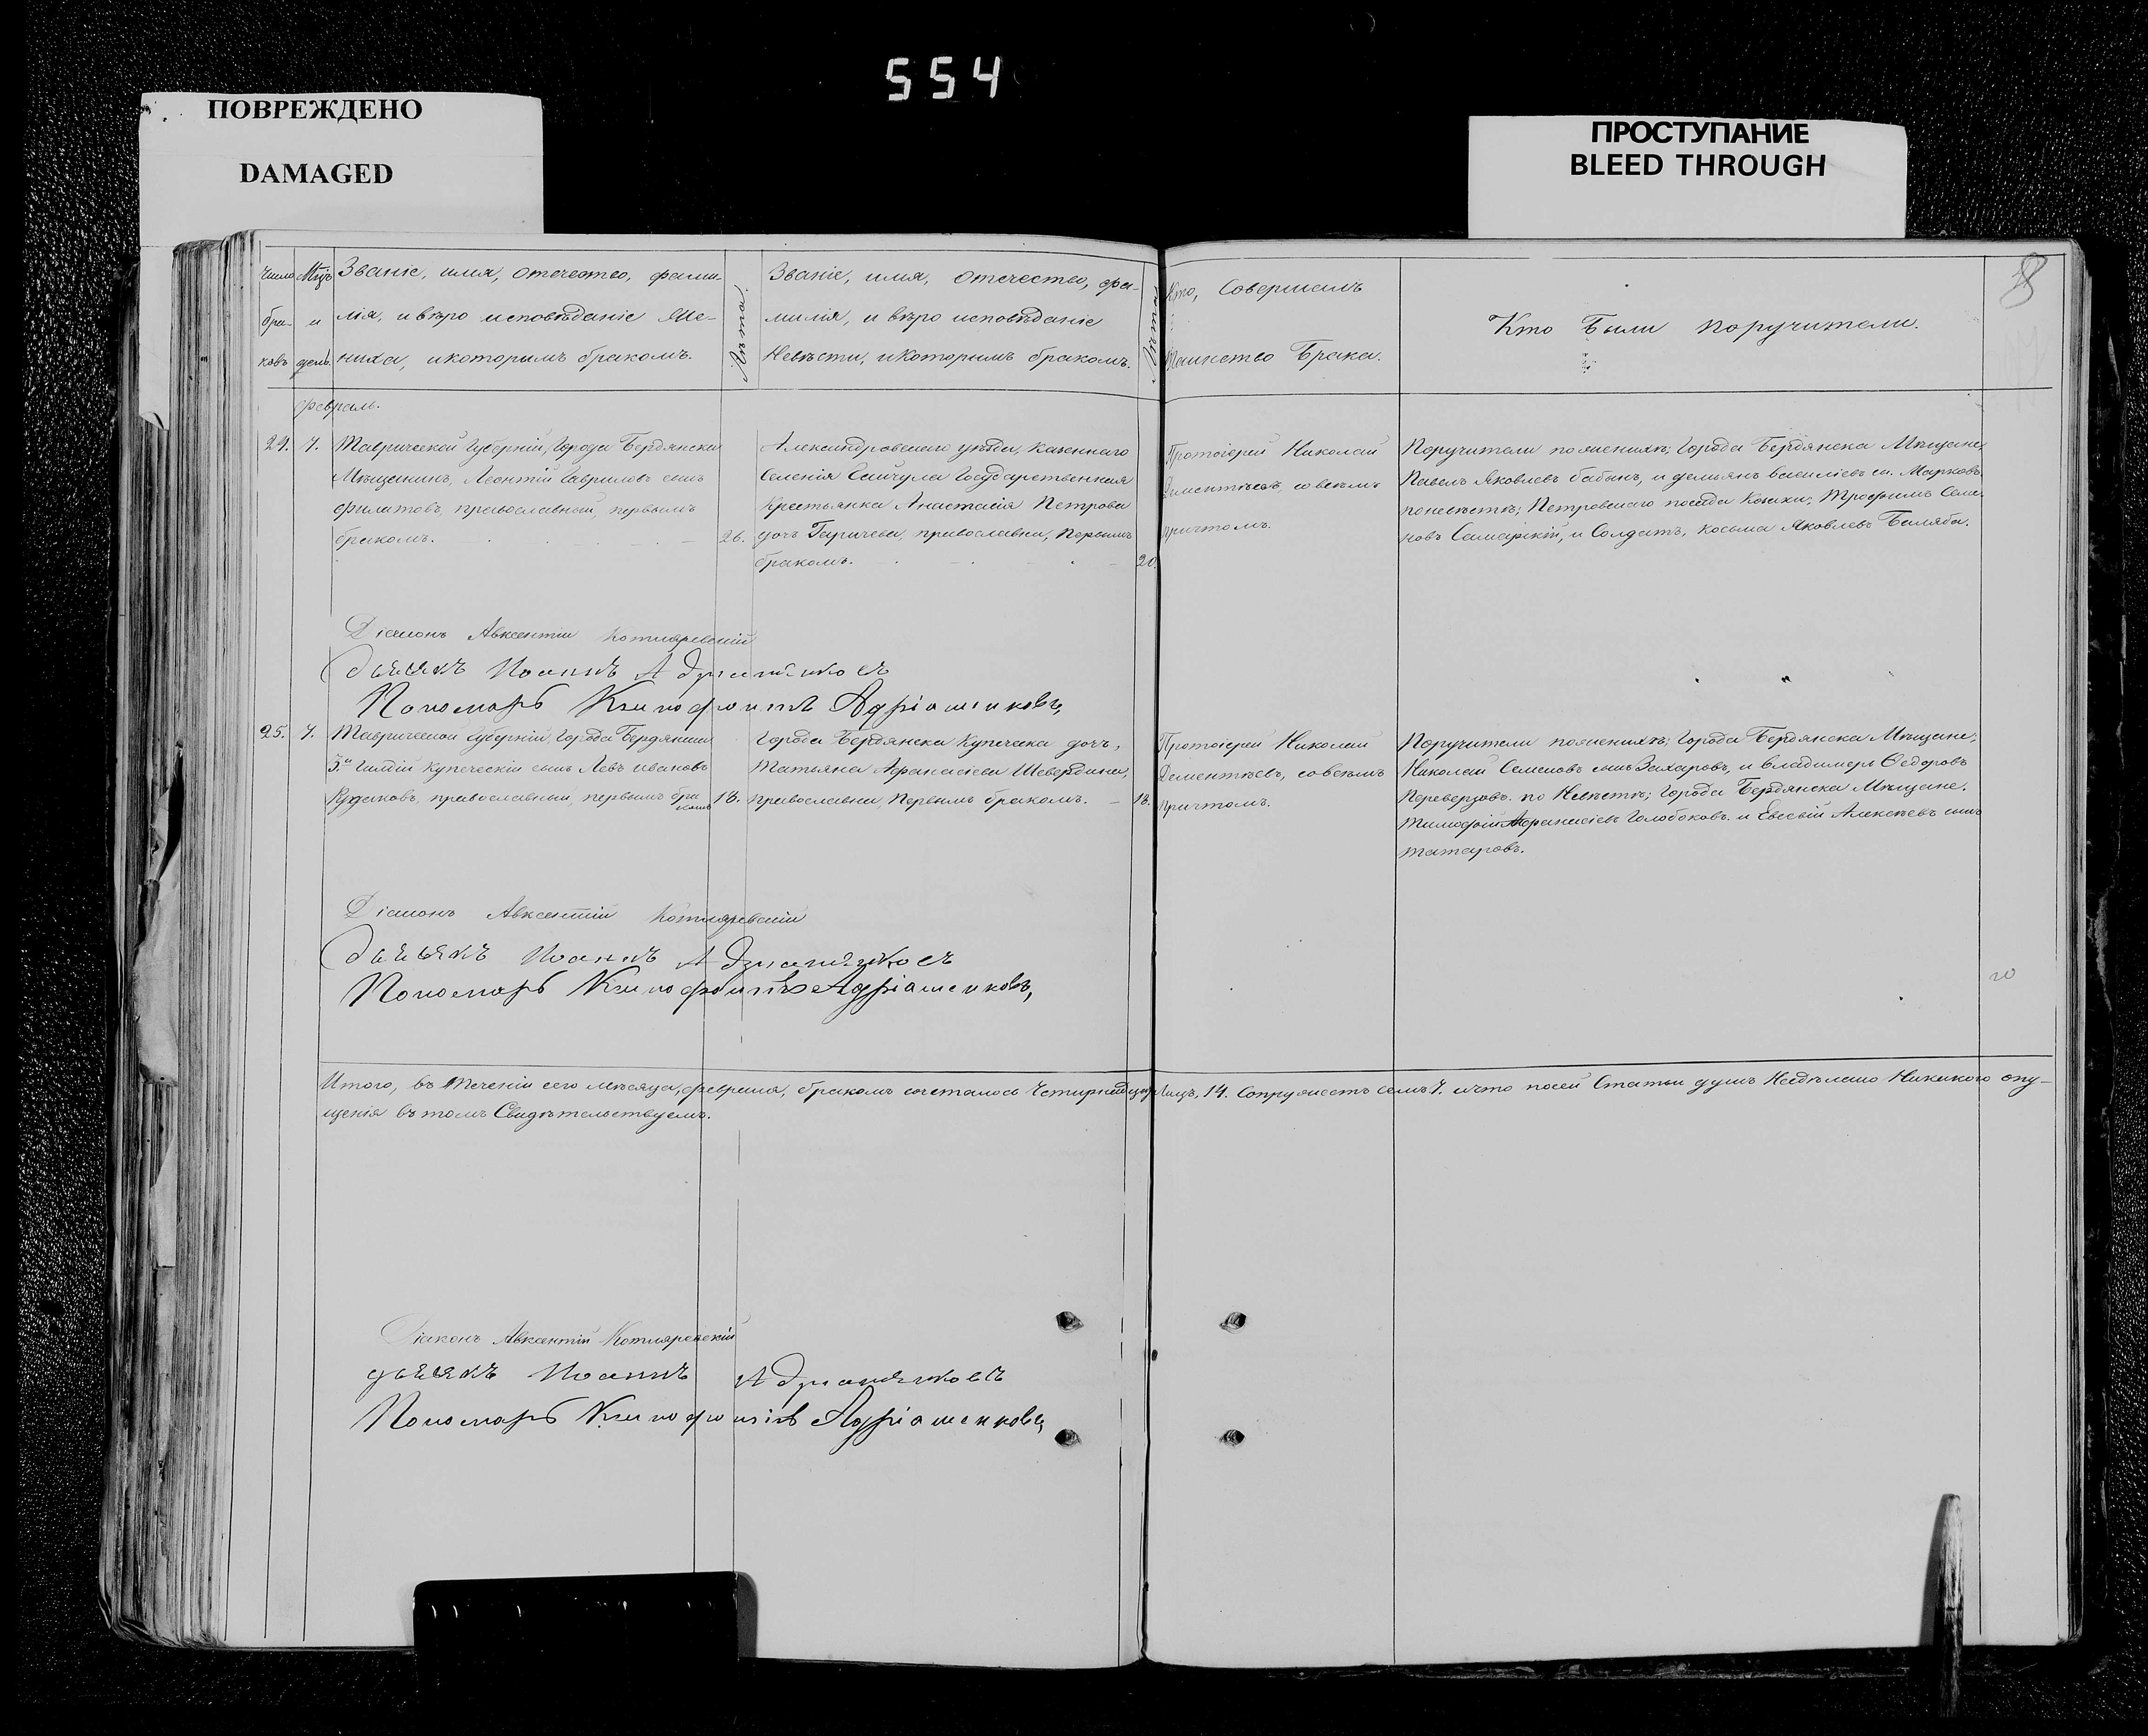 554
ПОВРЕЖДЕНО
DAMAGED
ПРОСТУПАНИЕ
BLEED THROUGH
8
Число
бра-
ковъ
Мцъ
и
день.
Званіе, имя, отечество, фами-
лія, и вѣро исповѣданіе Же-
ниха, и которимъ бракомъ.
Лѣта.
Званіе, имя, отечество, фа-
милія, и вѣро исповѣданіе
Невѣсти, и которимъ бракомъ.
Лѣта
Кто, Совершалъ
Таинство Брака.
Кто Были поручители.
Февраль.
24. 7.
Таврической Губерніи, Города Бердянска
Мѣщанинъ, Леонтій Гавриловъ сынъ
Филатовъ, православный, первымъ
бракомъ. 26.
Александровскаго уѣзда, казеннаго
Селенія Гайчула Государственная
Крестьянка Анастасія Петрова
дочь Гаричева, православна, Первымъ
бракомъ. 20.
Протоіерей Николай
Дементѣевъ, со всѣмъ
причтомъ.
Поручители по женихѣ; Города Бердянска Мѣщане,
Павелъ Яковлевъ Бабынъ, и Демьянъ Василіевъ сн. Марковъ
по невѣстѣ; Петровскаго посада Козаки; Трофимъ Семе-
новъ Самарскій, и Солдатъ, Косьма Яковлевъ Баляба.
Діаконъ Авксентій Котляревскій
Дьячокъ Иоаннъ Адріащенковъ
Пономарь Ксинофонтъ Адріащенковъ,
25. 7.
Таврической Губерніи, Города Бердянска
3й Гилдіи купеческій сынъ Левъ Ивановъ
Рудаковъ, православный, первымъ бра-
комъ 18.
Города Бердянска Купеческа дочь,
Татьяна Афанасіева Шевердина,
православна, Первымъ бракомъ. 18.
Протоіерей Николай
Дементѣевъ, со всѣмъ
Причтомъ.
Поручители по женихѣ; Города Бердянска Мѣщане;
Николай Семеновъ сынъ Захаровъ, и Владимеръ Федоровъ
Переверзовъ. по Невѣстѣ; Города Бердянска Мѣщане.
Тимофій Афанасіевъ Голобоковъ. и Евсевій Алексѣевъ сынъ
Татаровъ.
Діаконъ Авксентій Котляревскій
Дьячокъ Иоаннъ Адріащенковъ
Пономарь Ксинофонтъ Адріащенковъ,
Итого, въ теченіи сего мѣсяца, февраля, бракомъ сочеталось Четирнадцать Лицъ, 14. Сопружествъ семь 7. и что по сей Статьи душъ Несдѣлано Никакого опу-
щенія въ томъ Свидѣтельствуемъ.
Діаконъ Авксентій Котляревскій
дьячокъ Иоаннъ Адріащенковъ
Пономарь Ксинофонтъ Адріащенковъ,